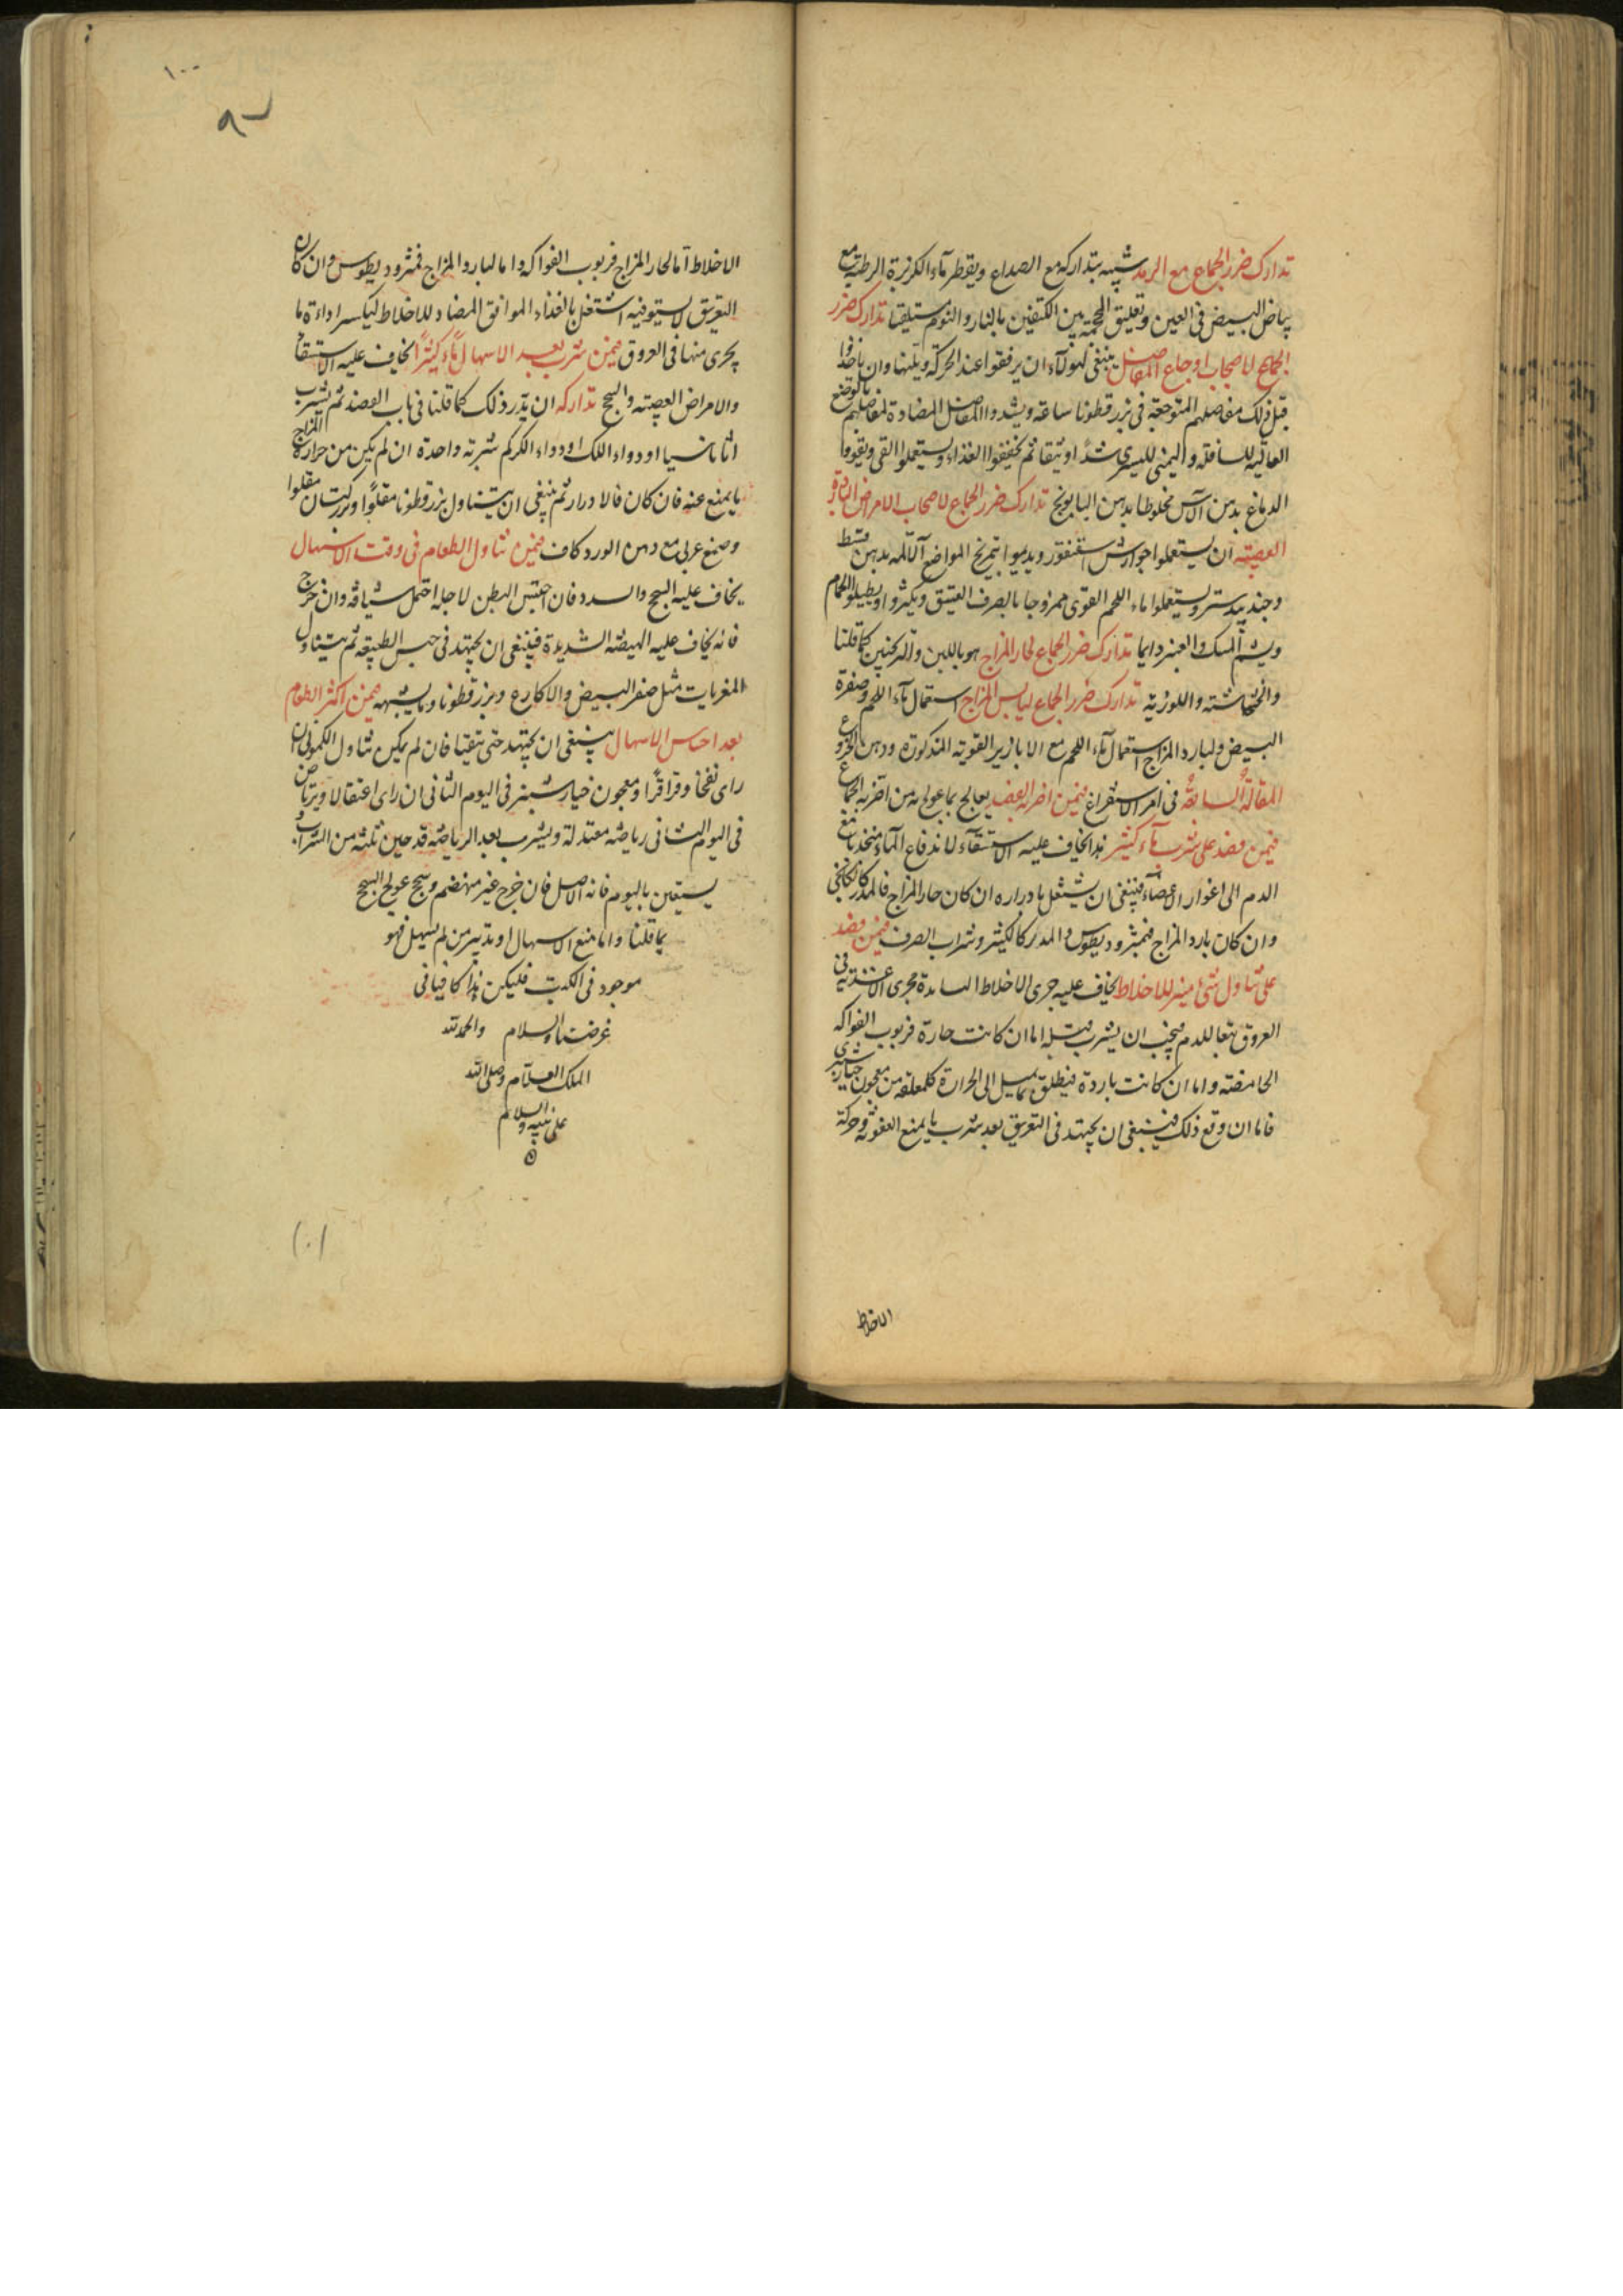 تدارك ضرر الجماع مع الرمد شبيه بتداركه مع الصداع ويقطر ماء الكزبرة الرطبة مع
بياض البيض فى العين وتعليق المحجمة بين الكتفين بالنار والنوم مستلقيا تدارك ضرر
الجماع لاصحاب اوجاع المفاصل ينبغى لهولاء ان يرفقوا عند الحركة وان ياخذوا
قبل ذلك مفاصلهم المتوجعة فى بزرقطونا ساعة ويشدوا المفاصل المضادة لمفاصلهم بالوضع
العالية للسافلة واليمنى لليسرى شدا وثيقا ثم يخففوا الغذاء ويستعملوا القى ويقووا
الدماغ بدهن الآس مخلوطا بدهن البابونج تدارك ضرر الجماع لاصحاب الامراض الباردة
العصبية ان يستعملوا جوارش سقنقور ويديموا تمريخ المواضع الآلمة بدهن قسط
وجندبيدستر ويستعملوا ماء اللحم القوى ممزوجا بالصرف العتيق ويكثروا ويطيلوا الحمام
ويشم المسك والعنبر دايما تدارك ضرر الجماع لحار المزاج هو باللبن والترنجبين كما قلنا
والخشخاشية واللوزية تدارك ضرر الجماع ليابس المزاج استعمال ماء اللحم وصفرة
البيض ولبارد المزاج استعمال ماء اللحم مع الابازير القوية المذكورة ودهن الخروع
المقالة السابعة فى امر الاستفراغ فيمن اضر به الفصد يعالج بما عولج به من اضر به الجماع
فيمن فصد على شرب ماء كثير هذا يخاف عليه الاستسقاء لاندفاع الماء منجذبا مع
الدم الى اغوار الاعضاء فينبغى ان يشتغل بادراره ان كان حار المزاج فالمدر كالسكنجبين
وان كان بارد المزاج فمثروديطوس والمدر كالكثير وشراب الصرف فيمن فصد
على تناول شئ مثير للاخلاط يخاف عليه جرى الاخلاط السادة مجرى الاغذية فى
العروق تبعا للدم فيجب ان يشرب قبله اما ان كانت حارة فربوب الفواكه
الحامضة واما ان كانت باردة فينطلق بما يميل الى الحرارة كلمعلقة من معجون خيار شنبرى
فاما ان وقع ذلك فينبغى ان يجتهد فى التعريق بعد شرب ما يمنع العفونة وحركة
الاخلاط
١٠٠
الاخلاط اما لحار المزاج فربوب الفواكه واما لبارد المزاج فمثروديطوس وان كان
التعريق لا يستوفيه اشتغل بالغذاء الموافق المضاد للاخلاط ليكسر اداءة ما
يجرى منها فى العروق فيمن شرب بعد الاسهال ماء كثيرا يخاف عليه الاستسقاء
والامراض العصبية والسحج تداركه ان يدر ذلك كما قلنا فى باب الفصد ثم يشرب
اثاناسيا او دواء اللك او دواء الكركم شربة واحدة ان لم يكن من حرارة المزاج
ما يمنع عنه فان كان فالادرار ثم ينبغى ان يتناول بزرقطونا مقلوا وبزركتان مقلوا
وصمغ عربى مع دهن الورد كاف فيمن تناول الطعام فى وقت الاسهال
يخاف عليه السحج والسدد فان احتبس البطن لاجله احتمل شيافة وان خرج
فانه يخاف عليه الهيضة الشديدة فينبغى ان يجتهد فى حبس الطبيعة ثم يتناول
المغريات مثل صفر البيض والاكارع وبزرقطونا وما يشبهه فيمن اكثر الطعام
بعد احساس الاسهال ينبغى ان يجتهد حتى يتقيا فان لم يمكن تناول الكمونى ان
راى نفخا وقراقرا ومعجون خيار شنبر فى اليوم الثانى ان راى اعتقالا ويرتاض
فى اليوم الثانى رياضة معتدلة ويشرب بعد الرياضة قدحين ثلثة من الشراب
يستعين باليوم فانه الاصل فان خرج غير منهضم وسحج عولج السحج
بما قلنا واما منع الاسهال او تدبير من لم يسهل فهو
موجود فى الكتب فليكن هذا كافيا فى
غرضنا والسلام والحمد لله
الملك العلام وصلى الله
على نبيه والسلام
(٠١